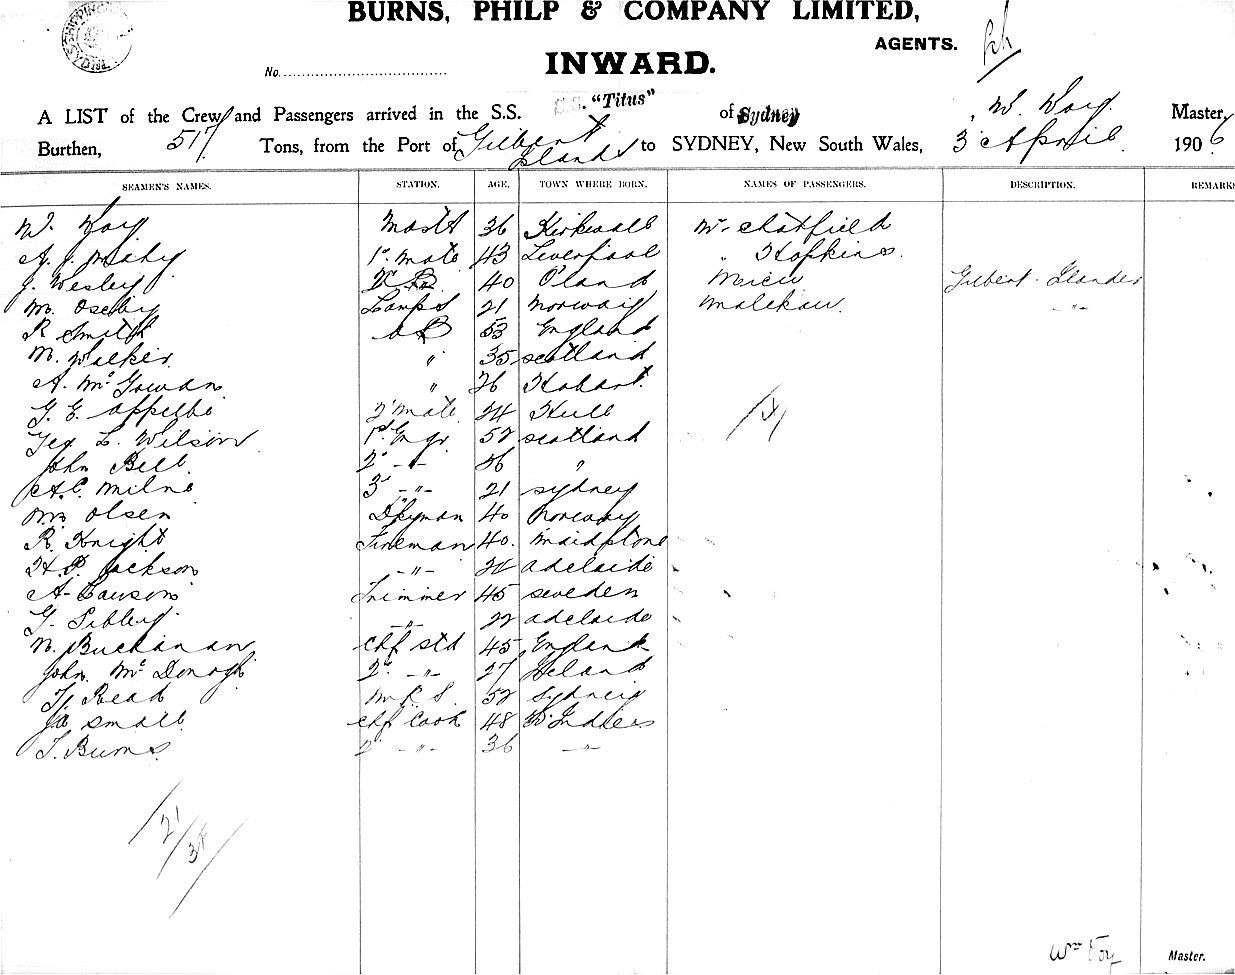 BURNS, PHILP & COMPANY LIMITED,
AGENTS.
No.
INWARD.
A LIST of the Crew and Passengers arrived in the S.S. S.S. "Titus" of Sydney, W. Voy. Master,
Burthen, 517 Tons, from the Port of Gilbert Islands to SYDNEY, New South Wales, 3 April 1906
SEAMEN'S NAMES. STATION. AGE. TOWN WHERE BORN. NAMES OF PASSENGERS. DESCRIPTION. REMARKS
W. Voy Mastr 36 Kirkwall Mr. Chatfield
A. J. 1st Mate 43 Liverpool " Hopkins.
J. Wesley 40 P'land Gilbert Islander
M. Oseby Lamps 21 Norway Malekau. -"-
R Smith AB 53 England
M. Walker " 35 Scotland
A. McGowan " 26 Hobart
G. E. Appelbe 2d Mate 24 Hull
Geo L. Wilson 1st Engr 52 Scotland
John Bell 2d -"- 36 "
A.C. Milne 3d -"- 21 Sydney
Olsen Dkyman 40 Norway
R. Knight Fireman 40. Maidstone
H. P. Jackson -"- Adelaide
A. Lawson Trimmer 45 Sweden
G. Sibley -"- 22 Adelaide
N. Buchanan Chf Std 45 England
John McDonagh 2d -"- 27 Ireland
Read M.R.S. 52 Sydney
Jas Small Chf Cook 48 W. Indies
T. Burns 2d -"- 36 -"-
21
Wm Voy Master.